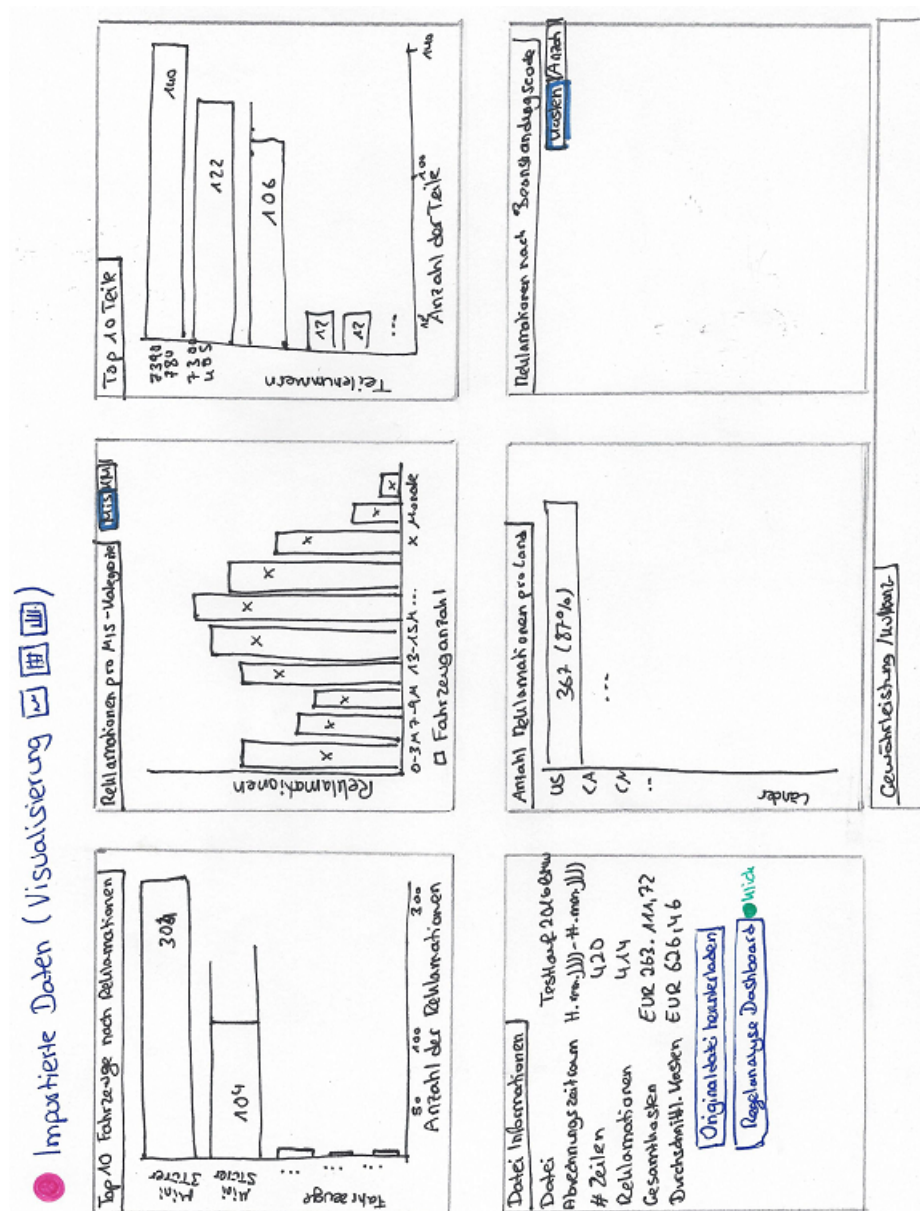 Importierte Daten (Visualisierung)
Top 10 Fahrzeuge nach Reklamationen
Mini
3türer
Mini
5türer
...
...
...
Fahrzeuge
104
50 100 300
Anzahl der Reklamationen
Reklamationen pro MIS-Kategorie
MIS KM
Reklamationen
x x x x x x x x x x
0-3M 7-9M 13-15M ... x Monate
Fahrzeuganzahl
Top 10 Teile
7390
780
7300
140
122
106
12
12
...
Teilenummern
100 140
Anzahl der Teile
Datei Informationen
Datei
Abrechnungszeitraum
# Zeilen 420
Reklamationen 414
Gesamtkosten EUR 263.111,72
Durchschnittl. Kosten EUR 626,46
Originaldatei herunterladen
Regelanalyse Dashboard
Klick
Anzahl Reklamationen pro Land
US
CA
CN
..
367 (87%)
...
Länder
Reklamationen nach Beanstandungscode
Kosten Anzahl
Gewährleistung/Kulanz